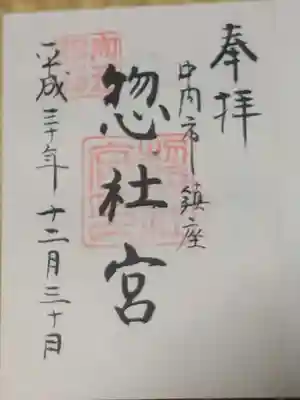 奉拝
中内市鎮座
惣社宮
平成三十年十二月三十日